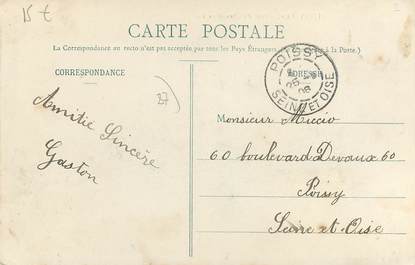 15 €
CARTE POSTALE
(La Correspondance au recto n'est pas acceptée par tous les Pays Étrangers. à la Poste.)
CORRESPONDANCE
ADRESSE
POISSY
25
08
SEINE ET OISE
87
Amitié Sincère
Gaston
Monsieur Mucio
60 boulevard Devaux 60
Poissy
Seine et Oise